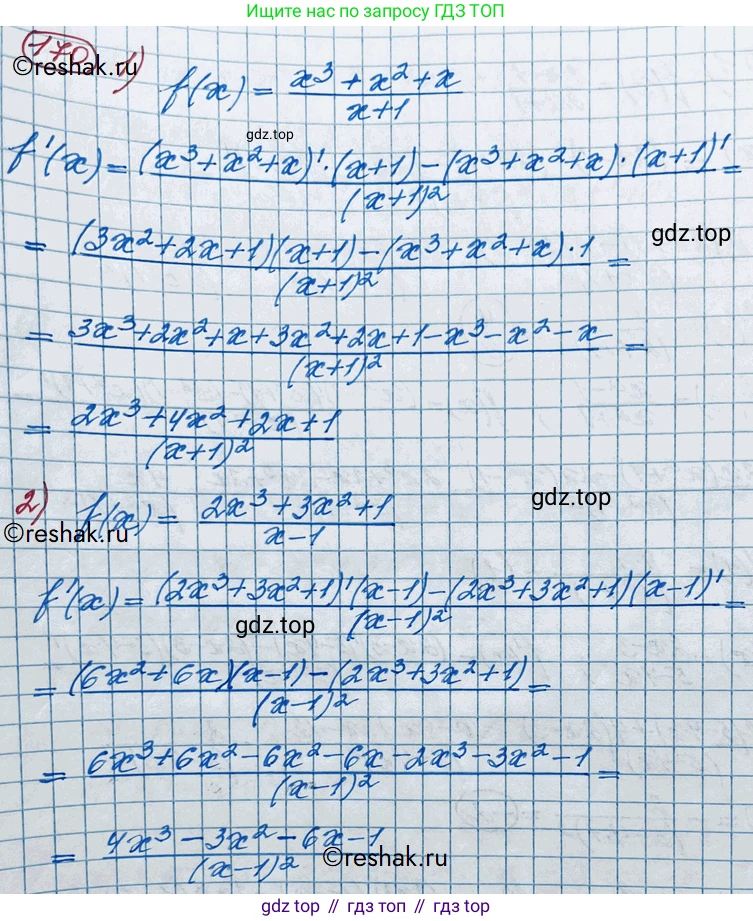 Ищите нас по запросу ГДЗ ТОП
170 1)
©reshak.ru
f(x) = (x³ + x² + x)/(x+1)
gdz.top
f'(x) = ((x³+x²+x)'·(x+1) – (x³+x²+x)·(x+1)')/(x+1)² =
= ((3x²+2x+1)(x+1) – (x³+x²+x)·1)/(x+1)² =
gdz.top
= (3x³+2x²+x+3x²+2x+1–x³–x²–x)/(x+1)² =
= (2x³+4x²+2x+1)/(x+1)²
2) f(x) = (2x³+3x²+1)/(x–1)
gdz.top
©reshak.ru
f'(x) = ((2x³+3x²+1)'(x–1)–(2x³+3x²+1)(x–1)')/(x–1)² =
gdz.top
= ((6x²+6x)(x–1)–(2x³+3x²+1))/(x–1)² =
= (6x³+6x²–6x²–6x–2x³–3x²–1)/(x–1)² =
= (4x³–3x²–6x–1)/(x–1)²
©reshak.ru
gdz.top // гдз.топ // gdz.top